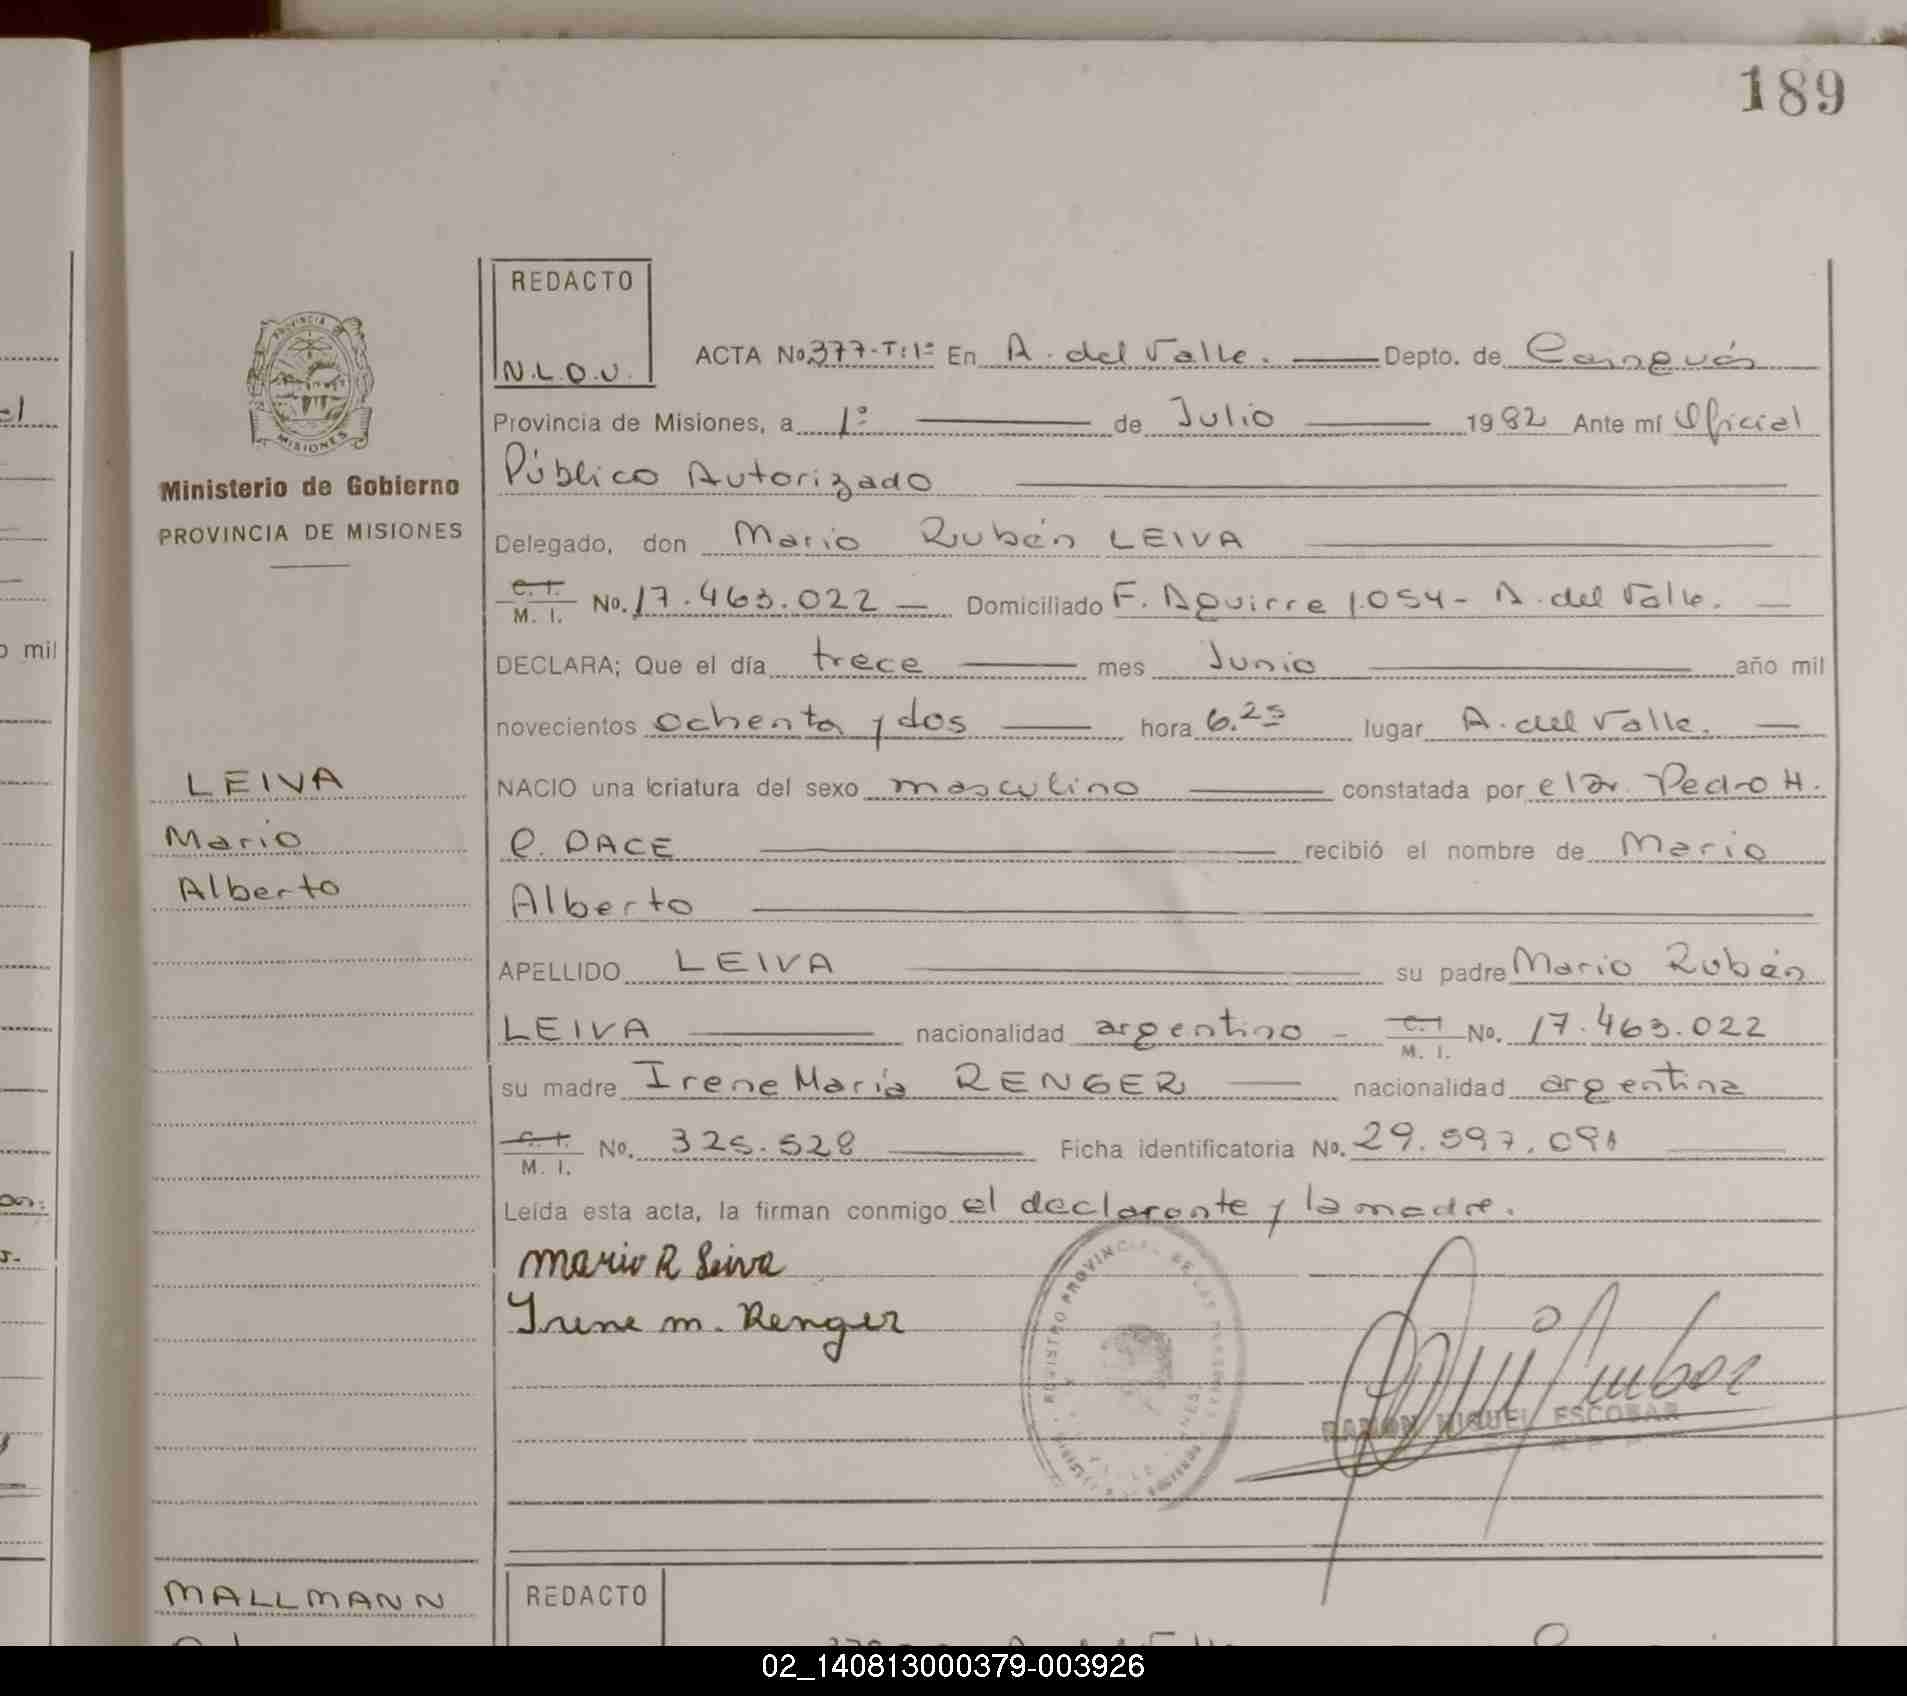 189
REDACTO
N.L.O.U.
ACTA No 377-T:1º En A. del Valle. Depto. de Cainguás
Provincia de Misiones, a 1º de Julio 1982 Ante mí Oficial
Público Autorizado
PROVINCIA DE
MISIONES
Ministerio de Gobierno
PROVINCIA DE MISIONES
Delegado, don Mario Rubén LEIVA
C. I.
M. I. No. 17.463.022 Domiciliado F. Aguirre 1.054 - A. del Valle.
DECLARA; Que el día trece mes Junio año mil
novecientos ochenta y dos hora 6.25 lugar A. del Valle.
LEIVA
Mario
Alberto
NACIO una criatura del sexo masculino constatada por el Dr. Pedro H.
C. DACE recibió el nombre de Mario
Alberto
APELLIDO LEIVA su padre Mario Rubén
LEIVA nacionalidad argentino - C. I
M. I. No. 17.463.022
su madre Irene María RENGER nacionalidad argentina
C. I.
M. I. No. 325.528 Ficha identificatoria No. 29.597.091
Leída esta acta, la firman conmigo el declarante y la madre.
Mario R Leiva
Irene M. Renger
REGISTRO PROVINCIAL DE LAS PERSONAS
RAMON MIGUEL ESCOBAR
MALLMANN
REDACTO
o mil
02_140813000379-003926